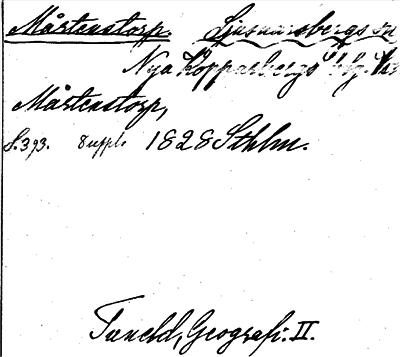 Mårtenstorp. Ljusnarsbergs sn
Nya Kopparbergs
Mårtenstorp,
S. 393. Suppl. 1828 Sthlm.
Tuneld, Geografi. II.